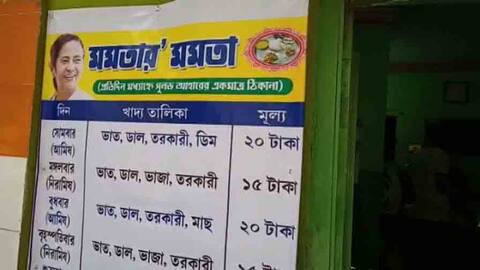 মমতার' মমতা
(প্রতিদিন মধ্যাহ্নে সুলভ আহারের একমাত্র ঠিকানা)
দিন খাদ্য তালিকা মূল্য
সোমবার (আমিষ) ভাত, ডাল, তরকারী, ডিম ২০ টাকা
মঙ্গলবার (নিরামিষ) ভাত, ডাল, ভাজা, তরকারী ১৫ টাকা
বুধবার (আমিষ) ভাত, ডাল, তরকারী, মাছ ২০ টাকা
বৃহস্পতিবার (নিরামিষ) ভাত, ডাল, ভাজা, তরকারী ১৫ টাকা